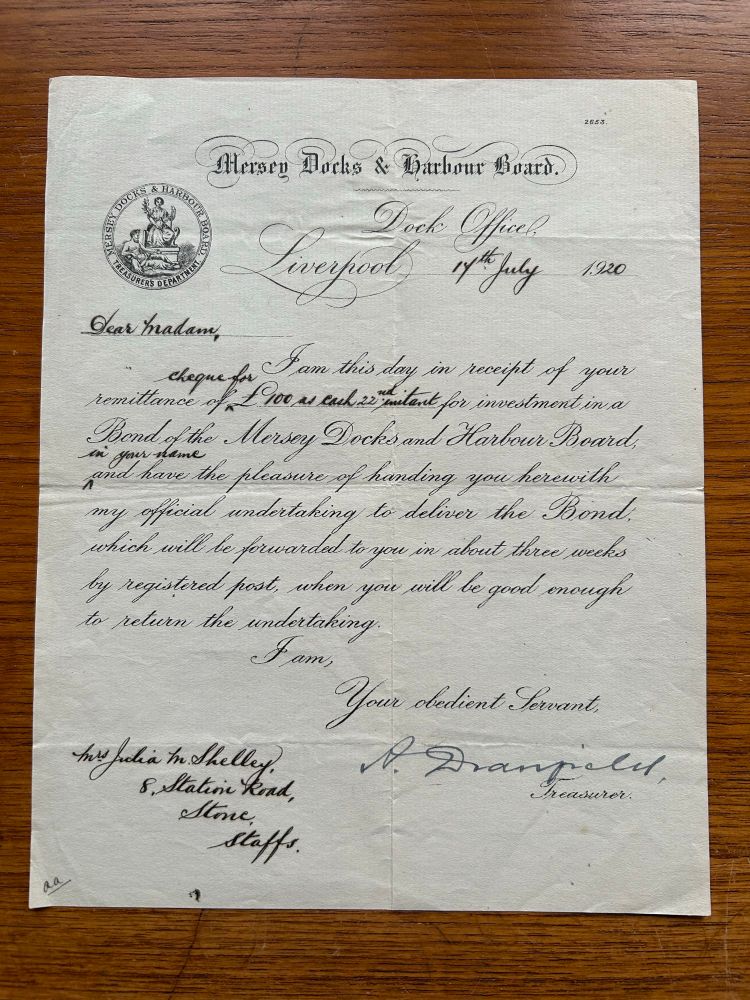 2653.
Mersey Docks & Harbour Board.
MERSEY DOCKS & HARBOUR BOARD.
TREASURER'S DEPARTMENT
Dock Office,
Liverpool 14th July 1920
Dear Madam,
I am this day in receipt of your
cheque for
remittance of ^ £100 as cash 22nd instant for investment in a
Bond of the Mersey Docks and Harbour Board,
in your name
^ and have the pleasure of handing you herewith
my official undertaking to deliver the Bond,
which will be forwarded to you in about three weeks
by registered post, when you will be good enough
to return the undertaking.
I am,
Your obedient Servant,
A. Dranfield,
Treasurer.
Mrs Julia M Shelley,
8, Station Road,
Stone,
Staffs.
aa